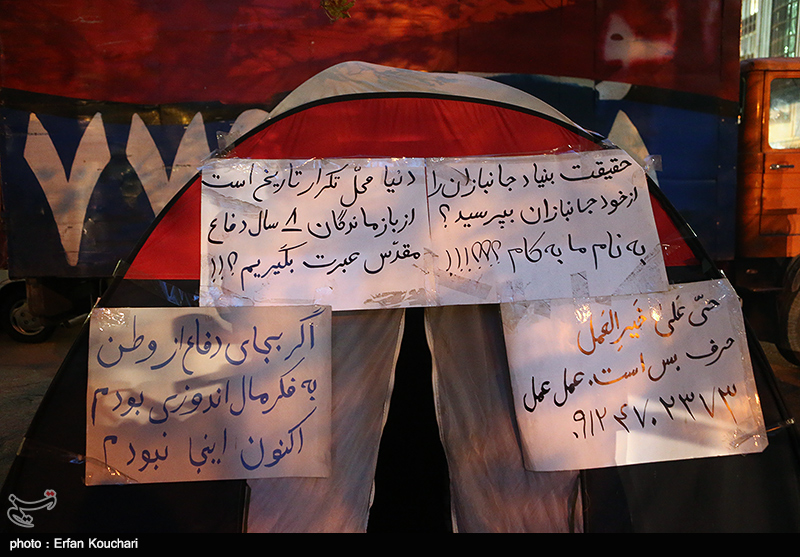 حقیقت بنیاد جانبازان را
از خود جانبازان بپرسید؟
به نام ما به کام ؟!!!!!!!
دنیا محلّ تکرار تاریخ است
از بازماندگان ۸ سال دفاع
مقدّس عبرت بگیریم؟!!
حیّ عَلی خَیرِ العَمل
حرف بس است. عمل عمل
۰۹۱۲۴۷۰۲۳۷۳
اگر بجای دفاع از وطن
به فکر مال اندوزی بودم
اکنون اینجا نبودم
تسنیم
photo : Erfan Kouchari